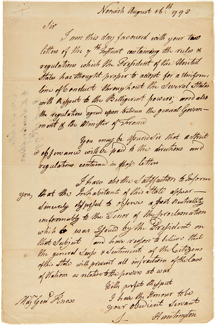 Norwich August 16th 1793
Sir
I am this day favoured with your two
letters of the 7th Instant containing the rules &
regulations which the President of the United
States has thought proper to adopt for a Uniform
line of Conduct throughout the Several States
with respect to the Belligerent powers; and also
the regulations agreed upon between the general Govern-
ment & the Minister of France
You may be assured that a strict
observance will be paid to the directions and
regulations contained in those letters
I have also the Satisfaction to inform
you, that the Inhabitants of this State appear
sincerely disposed to observe a just Neutrality
conformably to the Tenor of the proclamation
which was Issued by the President on
that Subject and have reason to believe that
the general Sense & Sentiment of the Citizens
of this State will prevent all infraction of the Laws
of Nations as relative to the powers at war
With perfect Respect
I have the Honour to be
your obedient Servant
S Huntington
Majr Genl Knox